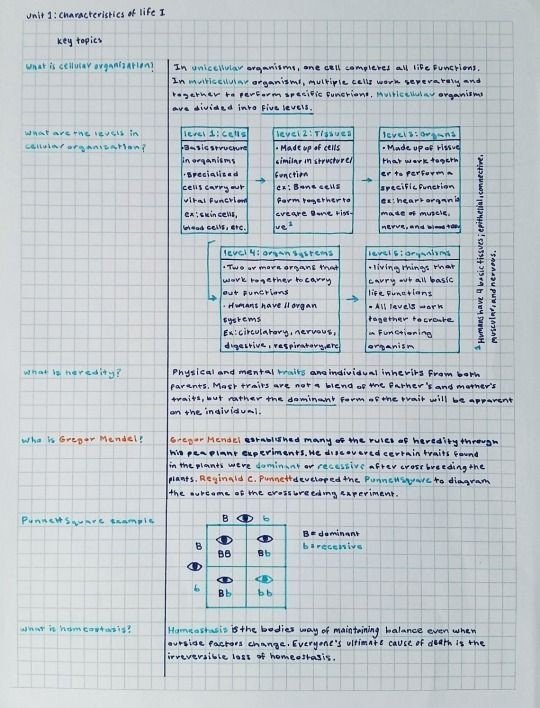 Unit 1: Characteristics of life I
Key topics
What is cellular organization?
In unicellular organisms, one cell completes all life functions.
In multicellular organisms, multiple cells work seperately and
together to perform specific functions. Multicellular organisms
are divided into five levels.
What are the levels in
cellular organization?
level 1: Cells
•Basic structure
in organisms
•Specialized
cells carry out
vital functions
ex: skin cells,
blood cells, etc.
level 2: Tissues
•Made up of cells
similar in structure/
function
ex: Bone cells
form together to
create Bone tiss-
ue¹
level 3: Organs
•Made up of tissue
that work togeth
er to perform a
specific function
ex: heart organ is
made of muscle,
nerve, and blood
level 4: Organ Systems
•Two or more organs that
work together to carry
out functions
•Humans have 11 organ
systems
Ex: circulatory, nervous,
digestive, respiratory, etc
level 5: Organisms
•living things that
carry out all basic
life functions
•All levels work
together to create
a functioning
organism
¹ Humans have 4 basic tissues; epithelial, connective,
muscular, and nervous.
What is heredity?
Physical and mental traits an individual inherits from both
parents. Most traits are not a blend of the father's and mother's
traits, but rather the dominant form of the trait will be apparent
on the individual.
Who is Gregor Mendel?
Gregor Mendel established many of the rules of heredity through
his pea plant experiments. He discovered certain traits found
in the plants were dominant or recessive after cross breeding the
plants. Reginald C. Punnett developed the Punnett Square to diagram
the outcome of the crossbreeding experiment.
Punnett Square example
B b
B BB Bb
b Bb bb
B = dominant
b = recessive
What is homeostasis?
Homeostasis is the bodies way of maintaining balance even when
outside factors change. Everyone's ultimate cause of death is the
irreversible loss of homeostasis.